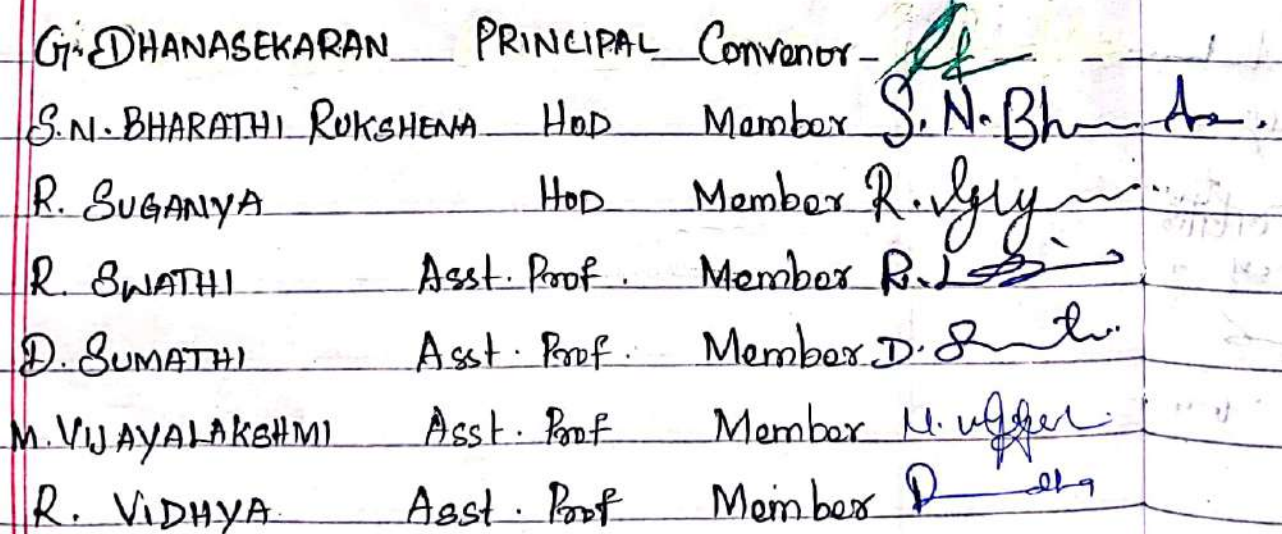 G. DHANASEKARAN PRINCIPAL Convenor -
S.N. BHARATHI RUKSHENA HOD Member S. N. Bh
R. SUGANYA HOD Member R.
R. SWATHI Asst. Prof. Member R.
D. SUMATHI Asst. Prof. Member D.
M. VIJAYALAKSHMI Asst. Prof Member M.
R. VIDHYA Asst. Prof Member